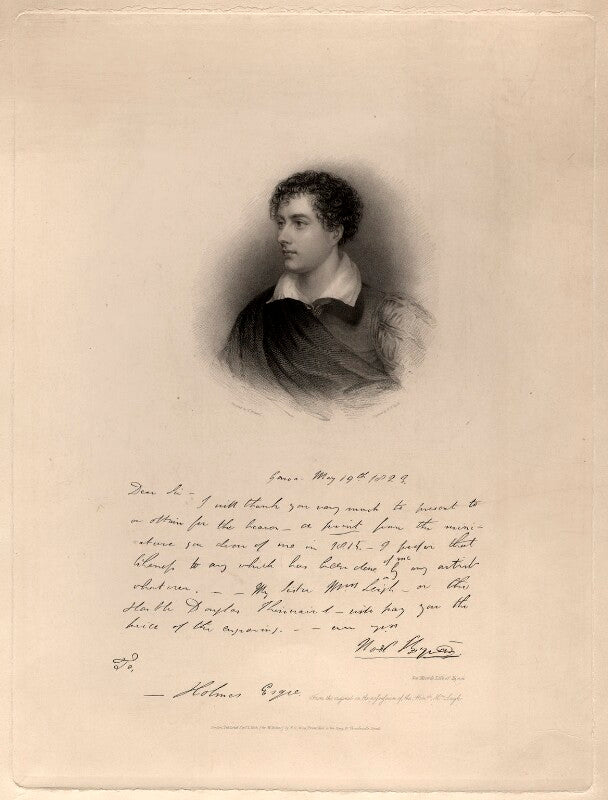 Genoa. May 19th 1823.
Dear Sir — I will thank you very much to present to
or obtain for the bearer — a print from the mini-
ature you drew of me in 1815 — I prefer that
likeness to any which has been done of me by any artist
whatever. — — My sister Mrs Leigh — or the
Honble Douglas Kinnaird — will pay you the
price of the engraving. — — ever yrs
Noel Byron
To,
— Holmes Esqre.
For Moore's Life of Byron
From the original in the possession of the Honble. Mrs. Leigh.
London, Published